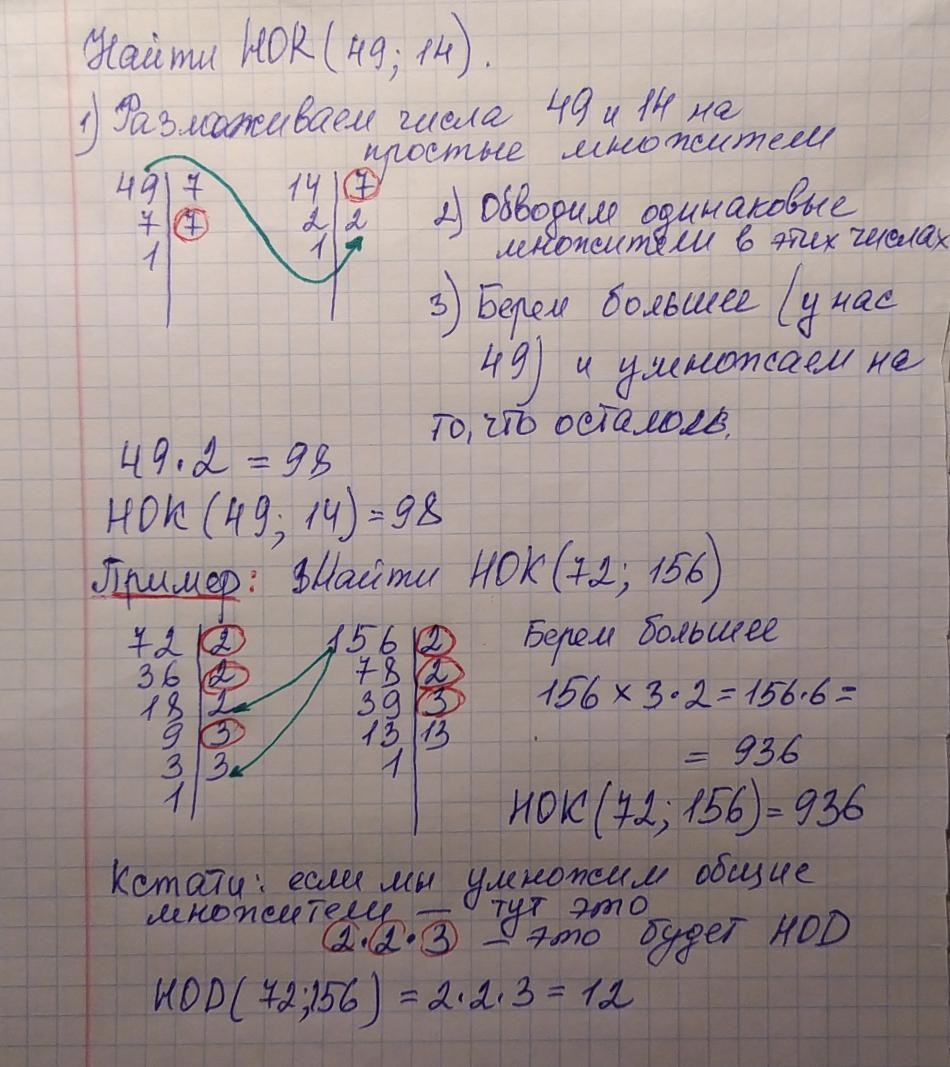 Найти НОК (49; 14).
1) Размлаживаем числа 49 и 14 на
простые множители
49 | 7
7 | 7
1
14 | 7
2 | 2
1
2) Обводим одинаковые
множители в этих числах
3) Берем большее (у нас
49) и умножаем на
то, что осталось.
49 · 2 = 98
НОК (49; 14) = 98
Пример: Найти НОК (72; 156)
72 | 2
36 | 2
18 | 2
9 | 3
3 | 3
1
156 | 2
78 | 2
39 | 3
13 | 13
1
Берем большее
156 × 3 · 2 = 156 · 6 =
= 936
НОК (72; 156) = 936
Кстати: если мы умножим общие
множители — тут это
2 · 2 · 3 — это будет НОD
НОD (72; 156) = 2 · 2 · 3 = 12